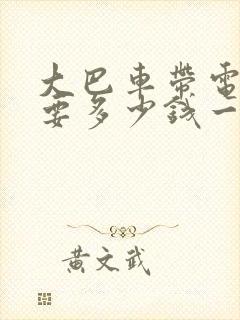 大巴車帶電
要多少錢一
黃文武